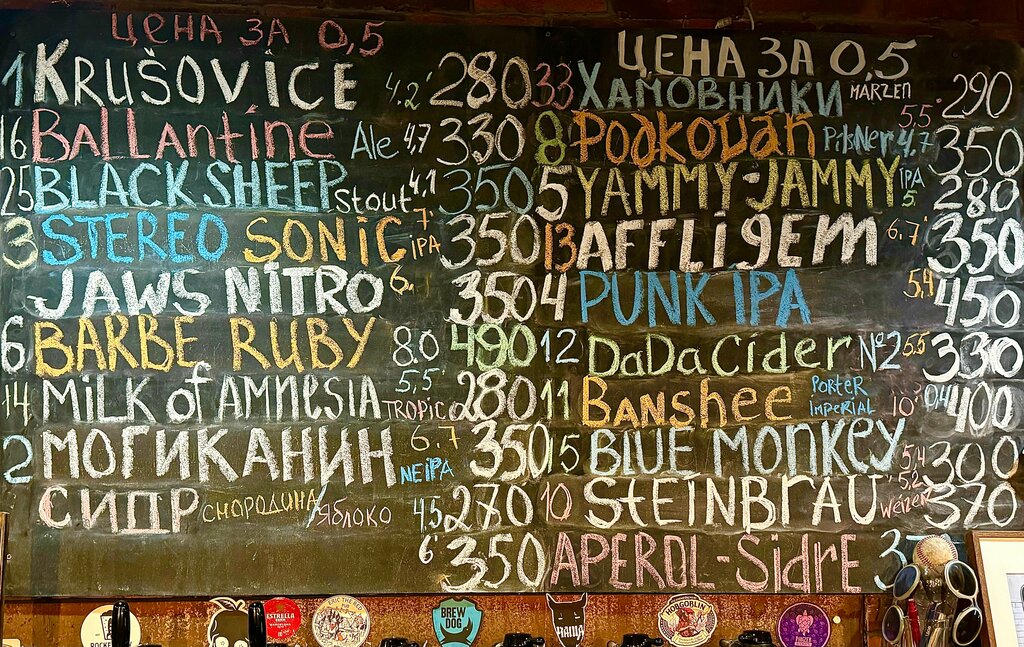 ЦЕНА ЗА 0,5
1 KRUŠOVICE 4.2 280
16 BALLANTINE Ale 4,7 330
25 BLACK SHEEP Stout 4,1 350
3 STEREO SONIC 7 IPA 350
JAWS NITRO 6, 350
6 BARBE RUBY 8.0 490
14 MILK of AMNESIA 5,5 TROPIC 280
2 МОГИКАНИН 6.7 NEIPA 350
СИДР СМОРОДИНА/ЯБЛОКО 4,5 270
6 350
ЦЕНА ЗА 0,5
33 ХАМОВНИКИ MARZEN 5.5 290
8 PODKOVAŇ PilsNer 4,7 350
5 YAMMY-JAMMY IPA 5 280
13 AFFLIGEM 6,7 350
4 PUNK IPA 5,4 450
12 DaDaCider №2 5.5 330
11 BANSHEE PORTER IMPERIAL 10 0,4 400
15 BLUE MONKEY 5,4 300
10 STEINBRAU 5,2 Weizen 370
APEROL-SidRE
ESTRELLA
ERIC THE RED
BREW
DOG
НАША
HOBGOBLIN